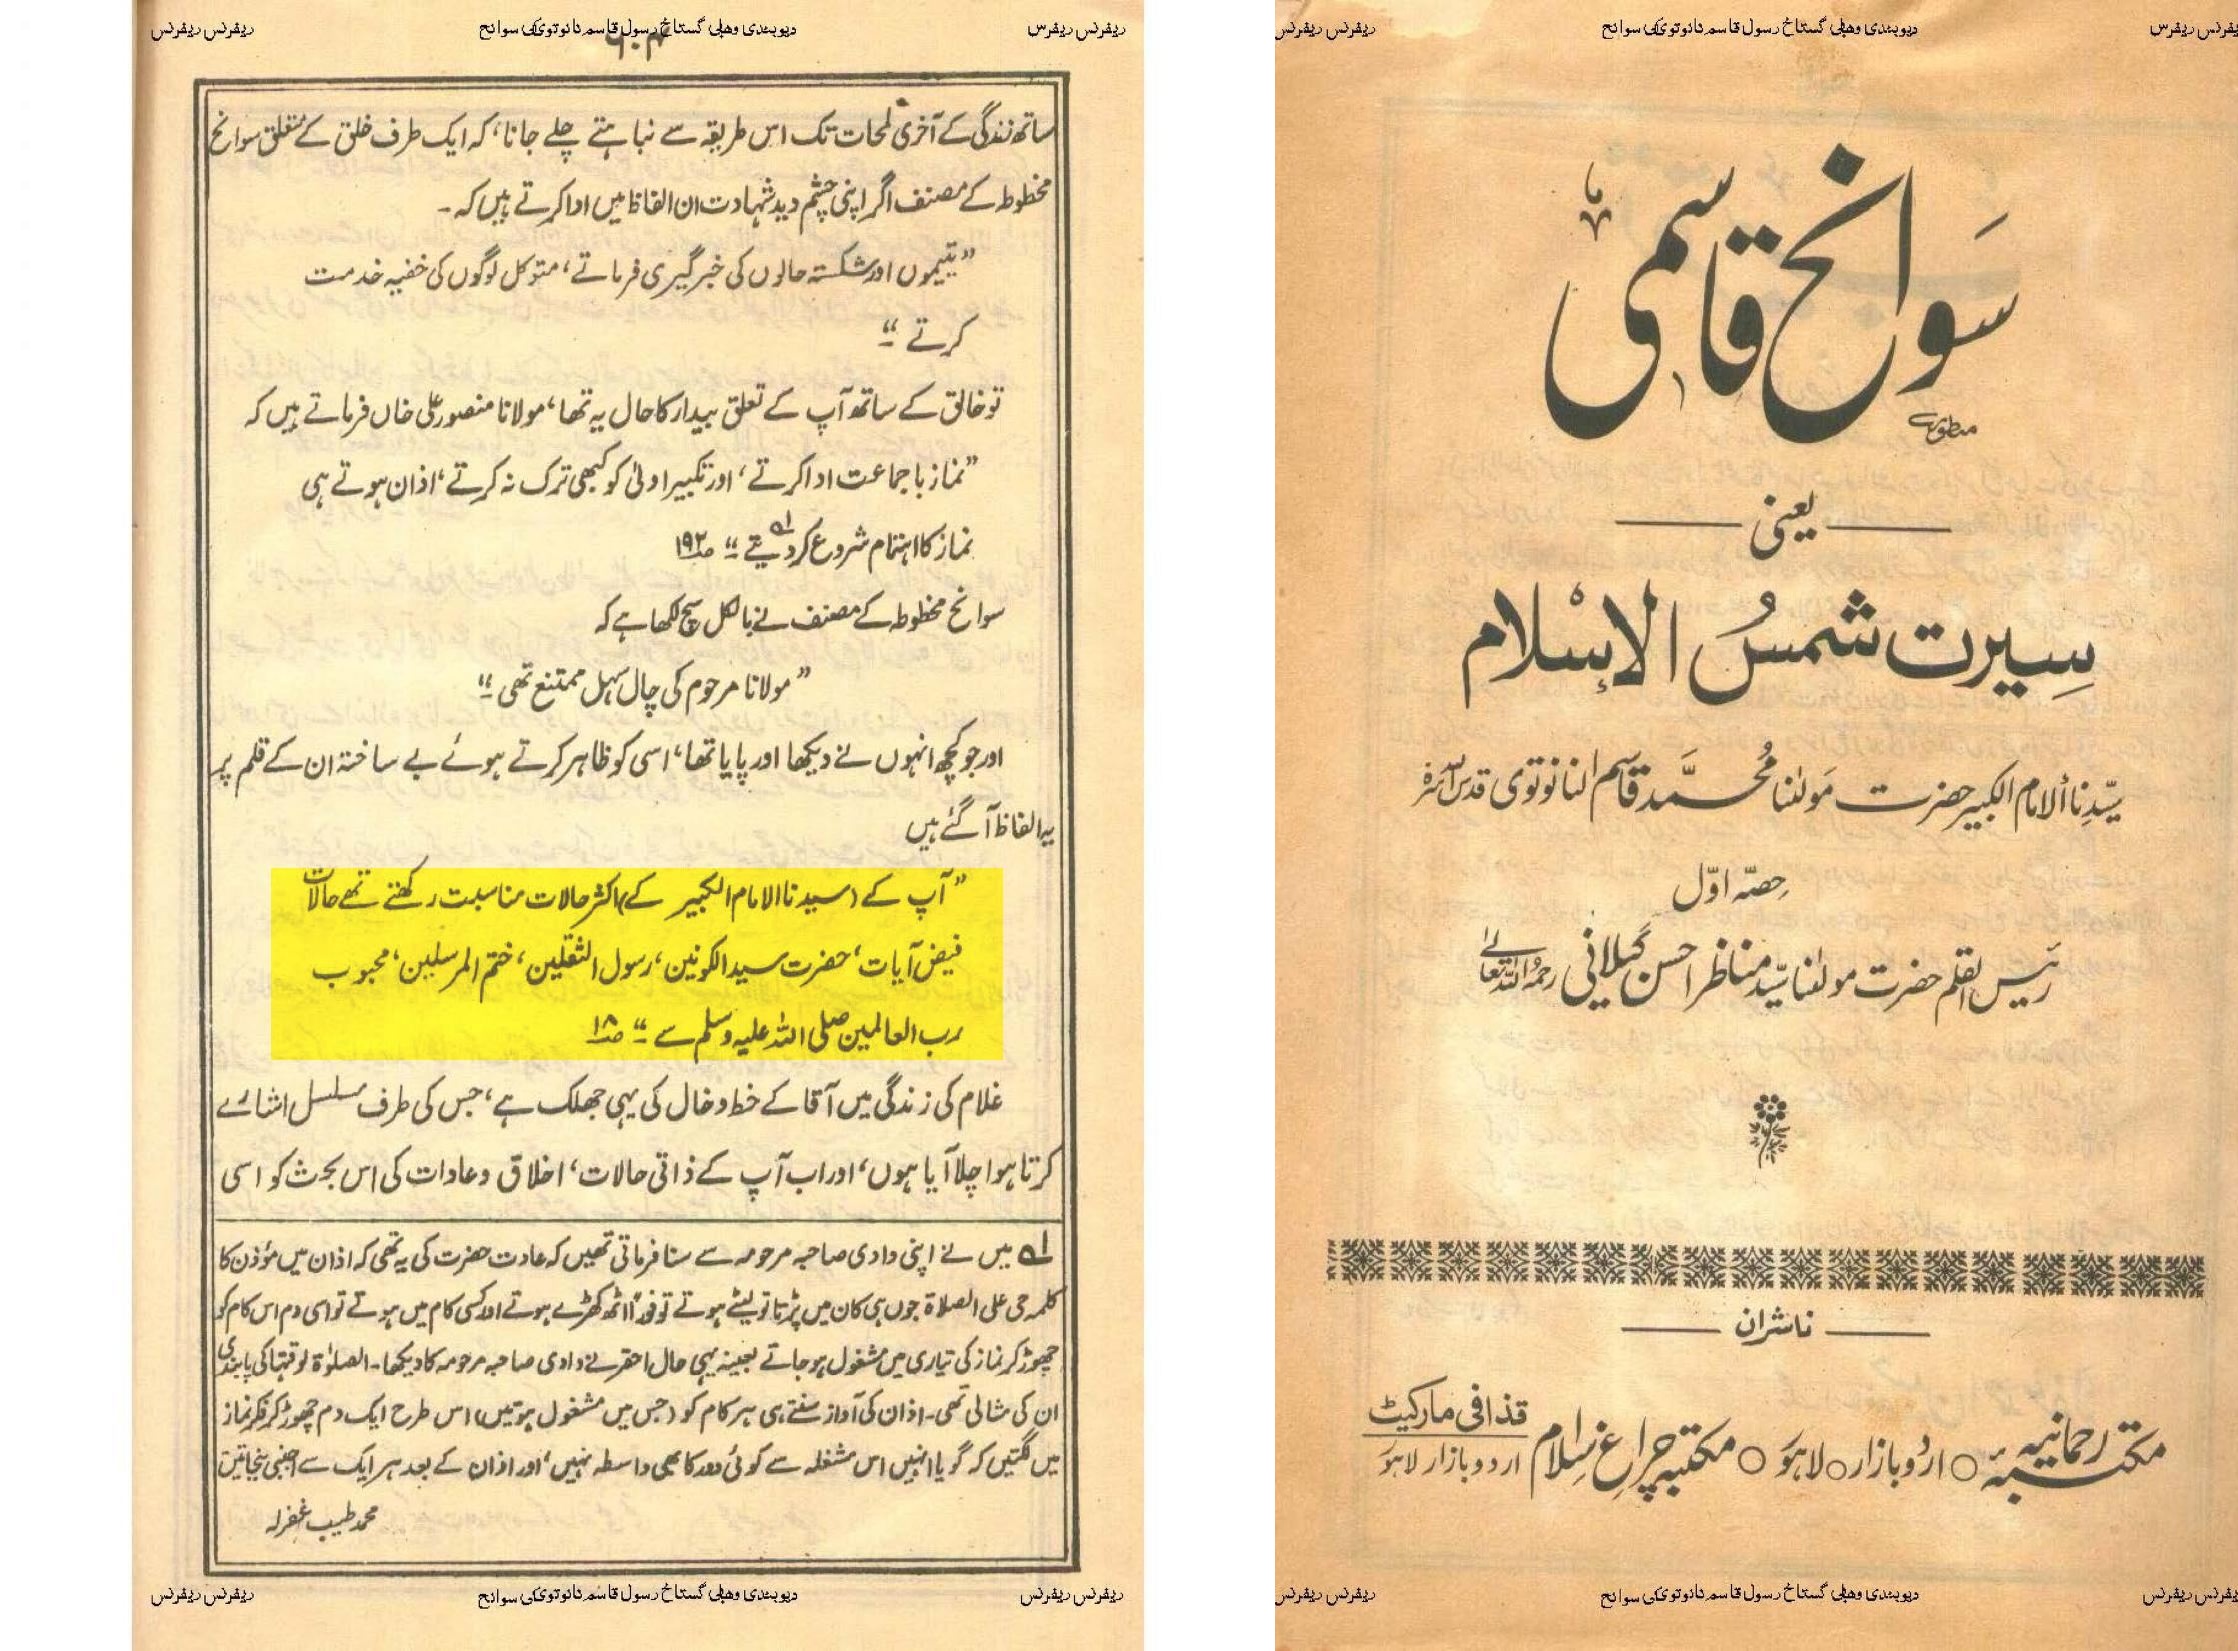 ریفرنس ریفرنس
دیوبندی وھابی گستاخ رسول قاسم نانوتوی کی سوانح
ریفرنس ریفرنس
سوانح قاسمی
یعنی
سیرت شمس الاسلام
سیدنا الامام الکبیر حضرت مولٰنا محمد قاسم النانوتوی قدس اللہ سرہٗ
حصہ اوّل
رئیس القلم حضرت مولٰنا سید مناظر احسن گیلانی رحمۃ اللہ تعالیٰ
ناشران
مکتبہ رحمانیہ ○ اردو بازار ○ لاہور ○ مکتبہ چراغ اسلام قذافی مارکیٹ
اردو بازار لاہور
ریفرنس ریفرنس
دیوبندی وھابی گستاخ رسول قاسم نانوتوی کی سوانح
ریفرنس ریفرنس
ریفرنس ریفرنس
دیوبندی وھابی گستاخ رسول قاسم نانوتوی کی سوانح
ریفرنس ریفرنس
ساتھ زندگی کے آخری لمحات تک اس طریقہ سے نباہتے چلے جانا، کہ ایک طرف خلق کے متعلق سوانح
مخطوطہ کے مصنف اگر اپنی چشم دید شہادت ان الفاظ میں ادا کرتے ہیں کہ۔
”یتیموں اور شکستہ حالوں کی خبر گیری فرماتے، متوکل لوگوں کی خفیہ خدمت
کرتے“
تو خالق کے ساتھ آپ کے تعلق بیدار کا حال یہ تھا، مولانا منصور علی خاں فرماتے ہیں کہ
”نماز باجماعت ادا کرتے، اور تکبیر اولیٰ کو کبھی ترک نہ کرتے، اذان ہوتے ہی
نماز کا اہتمام شروع کر دیتے“ ص۱۹۲
سوانح مخطوطہ کے مصنف نے بالکل سچ لکھا ہے کہ
”مولانا مرحوم کی چال سہل ممتنع تھی“
اور جو کچھ انہوں نے دیکھا اور پایا تھا، اسی کو ظاہر کرتے ہوئے بے ساختہ ان کے قلم پر
یہ الفاظ آگئے ہیں
”آپ کے (سیدنا الامام الکبیر کے) اکثر حالات مناسبت رکھتے تھے حالات
فیض آیات، حضرت سید الکونین، رسول الثقلین، ختم المرسلین، محبوب
رب العالمین صلی اللہ علیہ وسلم سے“ ص۱۸
غلام کی زندگی میں آقا کے خط و خال کی یہی جھلک ہے، جس کی طرف مسلسل اشارے
کرتا ہوا چلا آیا ہوں، اور اب آپ کے ذاتی حالات، اخلاق و عادات کی اس بحث کو اسی
لہ میں نے اپنی دادی صاحبہ مرحومہ سے سنا فرماتی تھیں کہ عادت حضرت کی یہ تھی کہ اذان میں مؤذن کا
کلمہ حی علی الصلاۃ جوں ہی کان میں پڑتا تو لیٹے ہوتے تو فوراً اٹھ کھڑے ہوتے اور کسی کام میں ہوتے تو اسی دم اس کام کو
چھوڑ کر نماز کی تیاری میں مشغول ہو جاتے بعینہ یہی حال احقر نے دادی صاحبہ مرحومہ کا دیکھا۔ الصلوٰۃ لوقتہا کی پابندی
ان کی مثالی تھی۔ اذان کی آواز سنتے ہی ہر کام کو (جس میں مشغول ہوتیں) اس طرح ایک دم چھوڑ کر فکر نماز
میں لگتیں کہ گویا انہیں اس مشغلہ سے کوئی دور کا بھی واسطہ نہیں، اور اذان کے بعد ہر ایک سے اجنبی بنجاتیں
محمد طیب غفرلہ
ریفرنس ریفرنس
دیوبندی وھابی گستاخ رسول قاسم نانوتوی کی سوانح
ریفرنس ریفرنس